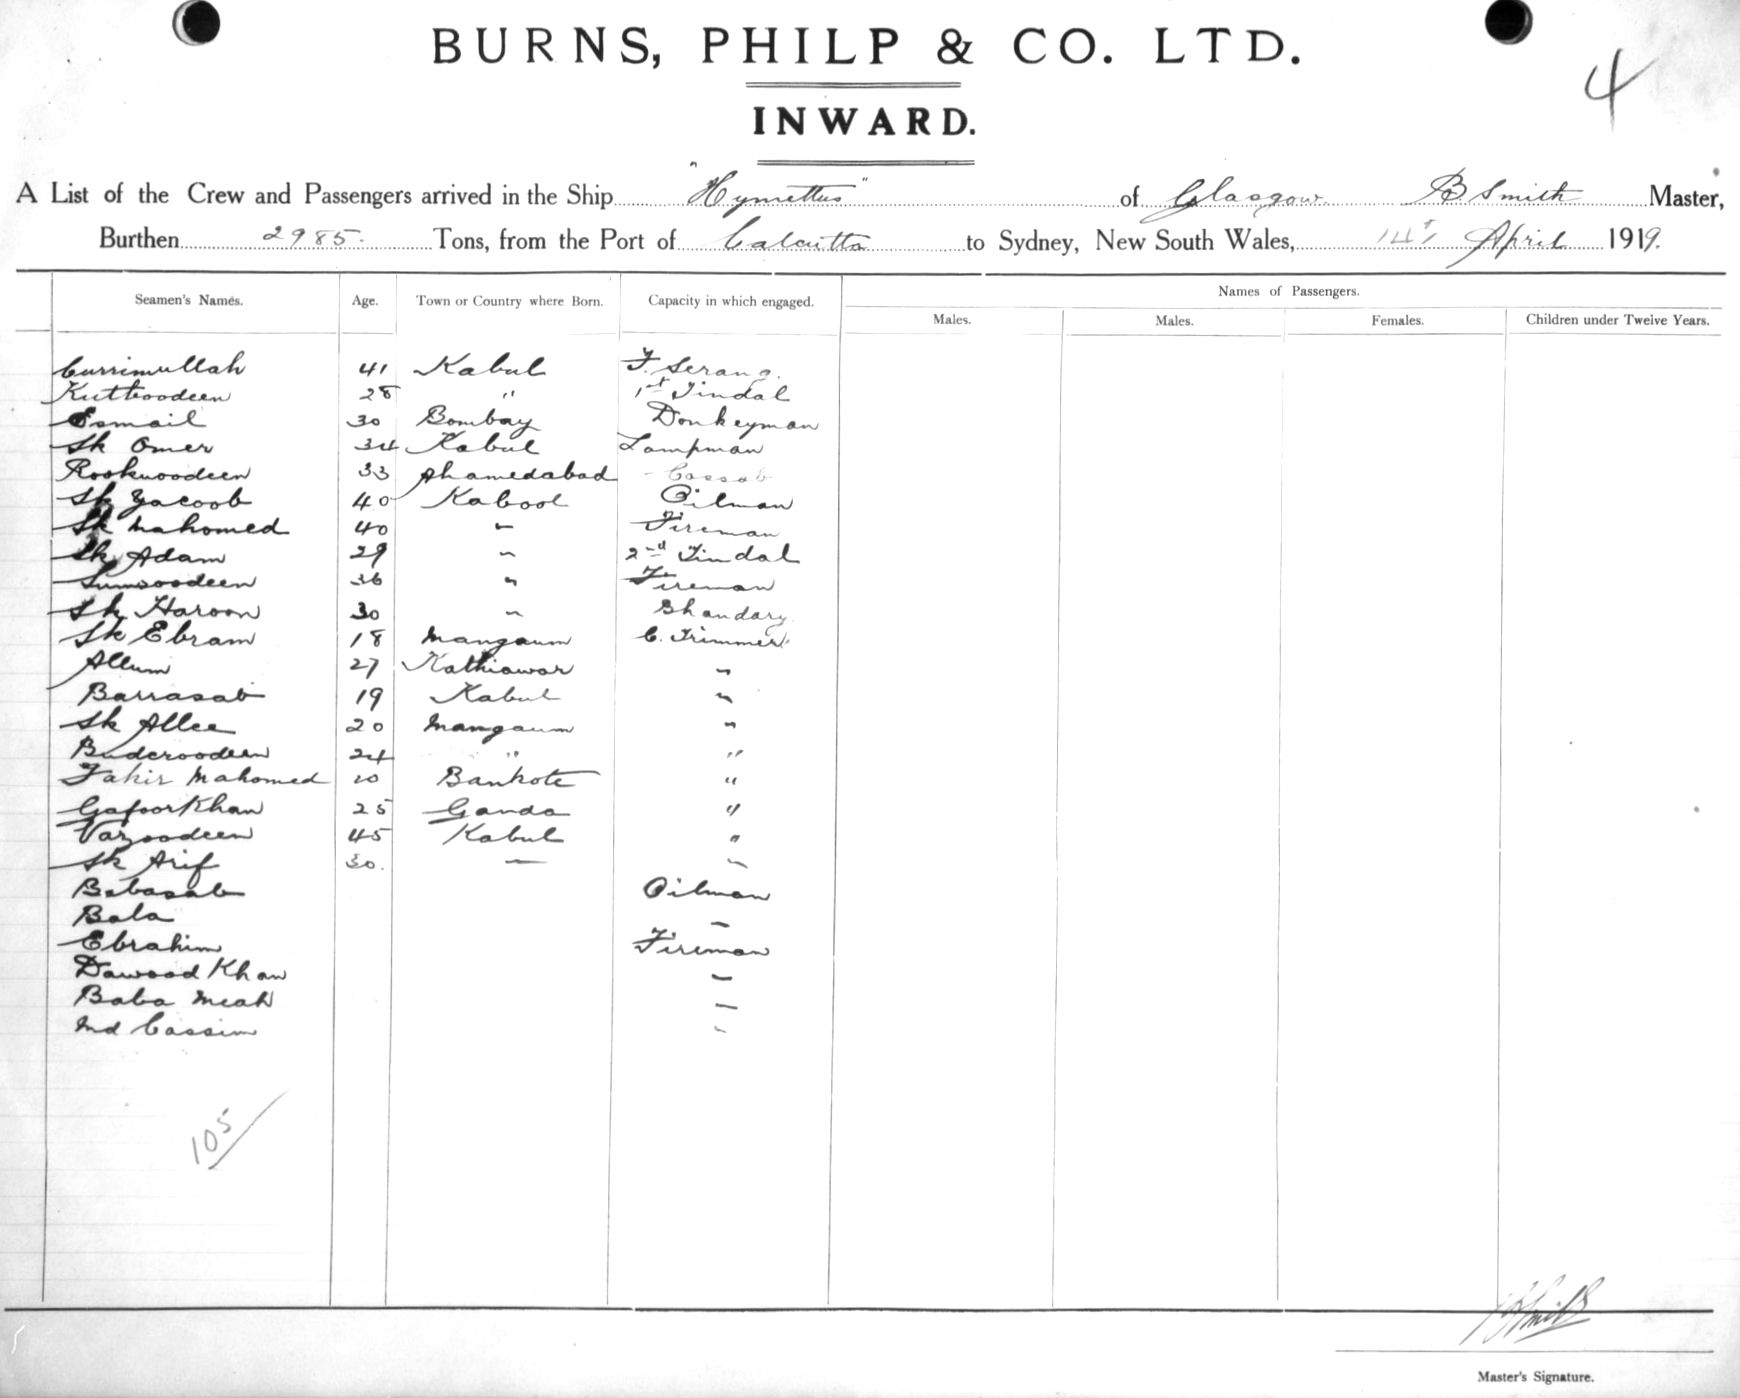 BURNS, PHILP & CO. LTD.
4
INWARD.
A List of the Crew and Passengers arrived in the Ship "Hymettus" of Glasgow B Smith Master,
Burthen 2985. Tons, from the Port of Calcutta to Sydney, New South Wales, 14th April 1919.
Seamen's Names. Age. Town or Country where Born. Capacity in which engaged. Names of Passengers.
Males. Males. Females. Children under Twelve Years.
Currimullah 41 Kabul F. Serang.
Kutboodeen 28 " 1st Tindal
Esmail 30 Bombay Donkeyman
Sk Omer 34 Kabul Lampman
Rooknoodeen 33 Ahamedabad Cassab
Sk Yacoob 40 Kabool Oilman
Sk Mahomed 40 " Fireman
Sk Adam 29 " 2nd Tindal
Sumsoodeen 36 " Fireman
Sk Haroon 30 " Bhandary
Sk Ebram 18 Mangaum C. Trimmer
Allum 27 Kathiawar "
Barrasab 19 Kabul "
Sk Allee 20 Mangaum "
Buderoodeen 24 " "
Fakir Mahomed 20 Bankote "
Gafoor Khan 25 Ganda "
Vazoodeen 45 Kabul "
Sk Arif 30. — "
Babasab Oilman
Bala "
Ebrahim Fireman
Dawood Khan "
Baba Meah "
Md Cassim "
105
B Smith
Master's Signature.